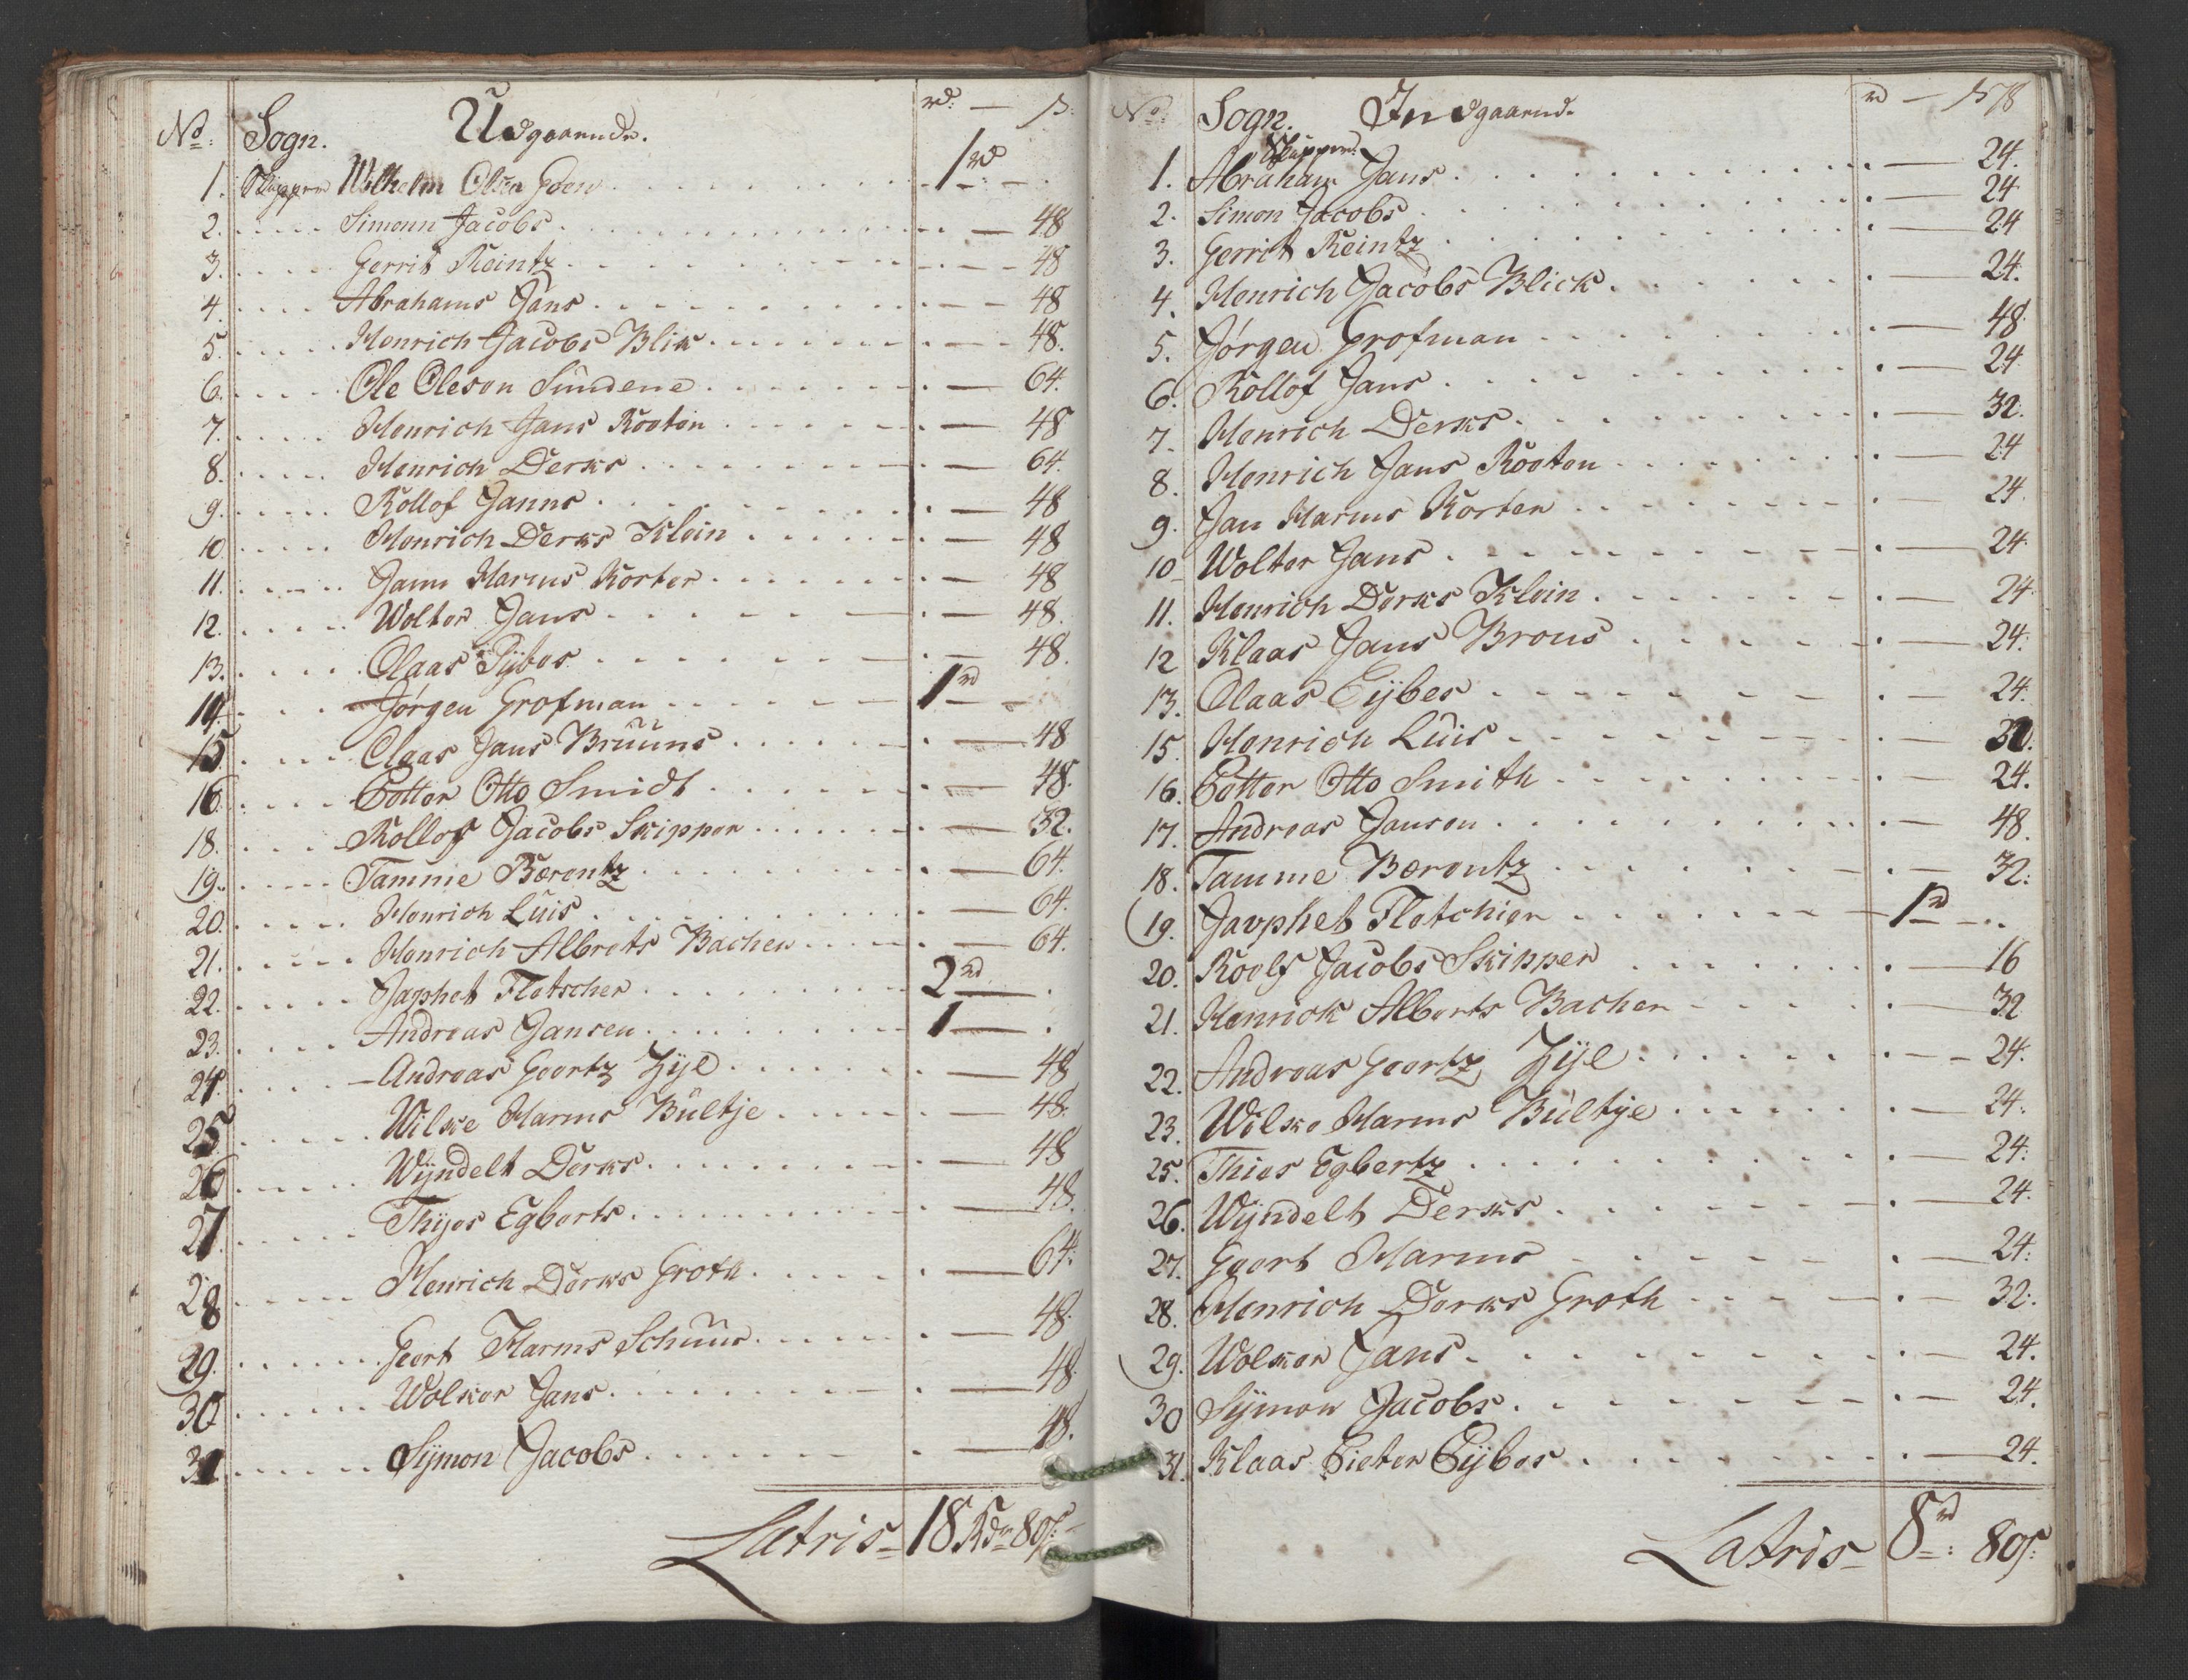 No: Sogn. Udgaaende. rd: — ß:
1. Skipper Wilhelm Olsen Goen 1 rd
2. Simonn Jacobs 48
3. Gerrit Reintz 48
4. Abrahams Jans 48
5. Henrich Jacobs Blik 48.
6. Ole Oleson Sundene 64.
7. Henrich Jans Kooton 48
8. Henrich Derks 64.
9. Rollof Janns 48
10 Henrich Derks Klein 48
11. Jann Harms Korter 48
12. Wolter Jans 48.
13. Claas Pijbes 48.
14. Jørgen Grofman 1 rd
15 Claas Jans Bruuns 48
16 Potter Otto Smidt 48.
18. Rollof Jacobs Skipper 32.
19. Tamme Berentz 64.
20. Henrich Luis 64.
21. Henrich Albrets Bachen 64.
22. Japhet Fletscher 2 rd
23. Andreas Jansen 1
24. Andreas Geertz Zijl 48
25 Wilke Harms Bultje 48.
26 Wijndelt Derks 48
27 Thijes Egberts 48.
28 Henrich Derks Groth 64.
29. Geert Harms Schuur 48.
30 Wolker Jans 48
31 Sijmon Jacobs 48.
Latris 18 Rdr 80ß:
No Sogn. Indgaaend. rd — ß 78
Skipper
1. Abraham Jans 24.
2. Simon Jacobs 24
3. Gerrit Reintz 24
4. Henrich Jacobs Blick 24.
5. Jørgen Grofman 48
6. Rollof Jans 24
7. Henrich Derks 32.
8. Henrich Jans Kooton 24
9. Jan Harms Korter 24
10 Wolter Jans 24
11. Henrich Derks Klein 24
12 Klaas Jans Brons 24.
13. Claas Eijbes 24.
15. Henrich Luis 32.
16. Potter Otto Smith 24.
17. Andreas Jansen 48
18. Tamme Berentz 32.
19. Javphet Fletchier 1 rd
20. Roolf Jacobs Skipper 16
21. Henrick Alberts Bacher 32
22. Andreas Geertz Zijl 24.
23. Wilke Harms Bultje 24.
25. Thies Egbertz 24.
26. Wijndelt Derks 24.
27. Geert Harms 24.
28. Henrich Derks Groth 32.
29. Wolker Jans 24.
30 Sijmon Jacobs 24.
31. Klaas Pieter Eijbes 24.
Latris 8 rd: 80ß: